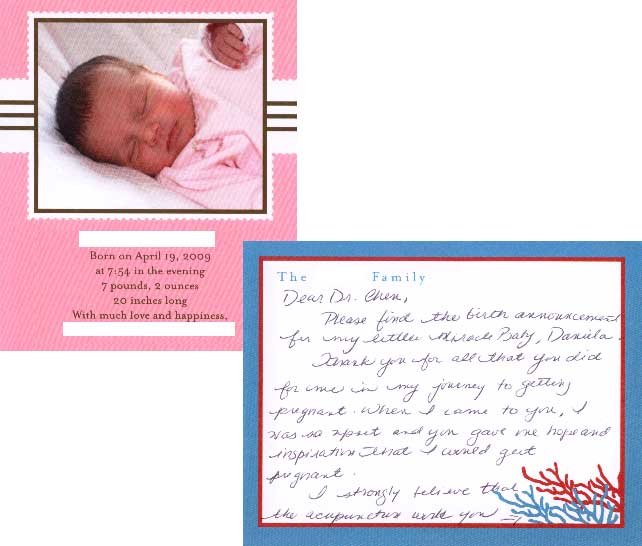 Born on April 19, 2009
at 7:54 in the evening
7 pounds, 2 ounces
20 inches long
With much love and happiness,
The Family
Dear Dr. Chen,
Please find the birth announcement
for my little Miracle Baby, Daniela.
Thank you for all that you did
for me in my journey to getting
pregnant. When I came to you, I
was so upset and you gave me hope and
inspiration that I would get
pregnant.
I strongly believe that
the acupuncture work you →